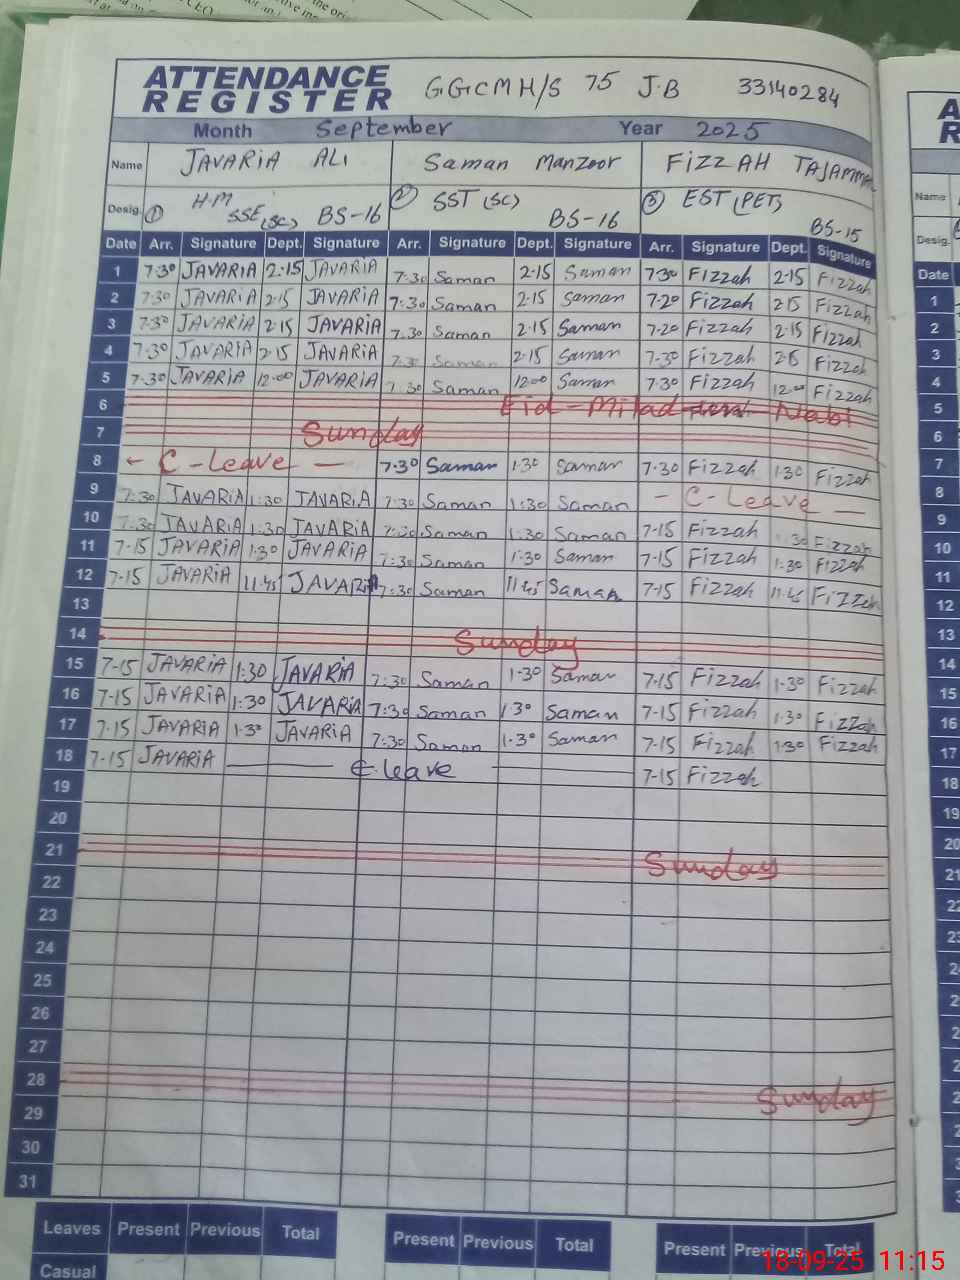 ATTENDANCE
REGISTER GGCMH/S 75 J.B 33140284
Month September Year 2025
Name JAVARIA ALI Saman Manzoor FIZZAH TAJAMMAL
Desig. ① H.M SSE(SC) BS-16 ② SST (SC) BS-16 ③ EST (PET) BS-15
Date Arr. Signature Dept. Signature Arr. Signature Dept. Signature Arr. Signature Dept. Signature
1 7:30 JAVARIA 2:15 JAVARIA 7:30 Saman 2:15 Saman 7:30 Fizzah 2:15 Fizzah
2 7:30 JAVARIA 2:15 JAVARIA 7:30 Saman 2:15 Saman 7-20 Fizzah 2:15 Fizzah
3 7:30 JAVARIA 2:15 JAVARIA 7:30 Saman 2:15 Saman 7-20 Fizzah 2:15 Fizzah
4 7:30 JAVARIA 2:15 JAVARIA 7:30 Saman 2:15 Saman 7-30 Fizzah 2:15 Fizzah
5 7:30 JAVARIA 12:00 JAVARIA 7:30 Saman 12:00 Saman 7:30 Fizzah 12:00 Fizzah
6 Eid-Milad Nabi
7 Sunday
8 ← C-Leave — 7:30 Saman 1:30 Saman 7:30 Fizzah 1:30 Fizzah
9 7:30 JAVARIA 1:30 JAVARIA 7:30 Saman 1:30 Saman — C-Leave —
10 7:30 JAVARIA 1:30 JAVARIA 7:30 Saman 1:30 Saman 7-15 Fizzah 1:30 Fizzah
11 7-15 JAVARIA 1:30 JAVARIA 7:30 Saman 1:30 Saman 7-15 Fizzah 1:30 Fizzah
12 7-15 JAVARIA 11:45 JAVARIA 7:30 Saman 11:45 Saman 7-15 Fizzah 11:45 Fizzah
13
14 Sunday
15 7-15 JAVARIA 1:30 JAVARIA 7:30 Saman 1:30 Saman 7-15 Fizzah 1:30 Fizzah
16 7-15 JAVARIA 1:30 JAVARIA 7:30 Saman 1:30 Saman 7-15 Fizzah 1:30 Fizzah
17 7-15 JAVARIA 1:30 JAVARIA 7:30 Saman 1:30 Saman 7-15 Fizzah 1:30 Fizzah
18 7-15 JAVARIA — C-leave — 7-15 Fizzah
19
20
21 Sunday
22
23
24
25
26
27
28 Sunday
29
30
31
Leaves Present Previous Total Present Previous Total Present Previous Total
Casual
Name
Desig.
Date
1
2
3
4
5
6
7
8
9
10
11
12
13
14
15
16
17
18
19
20
21
18-09-25 11:15